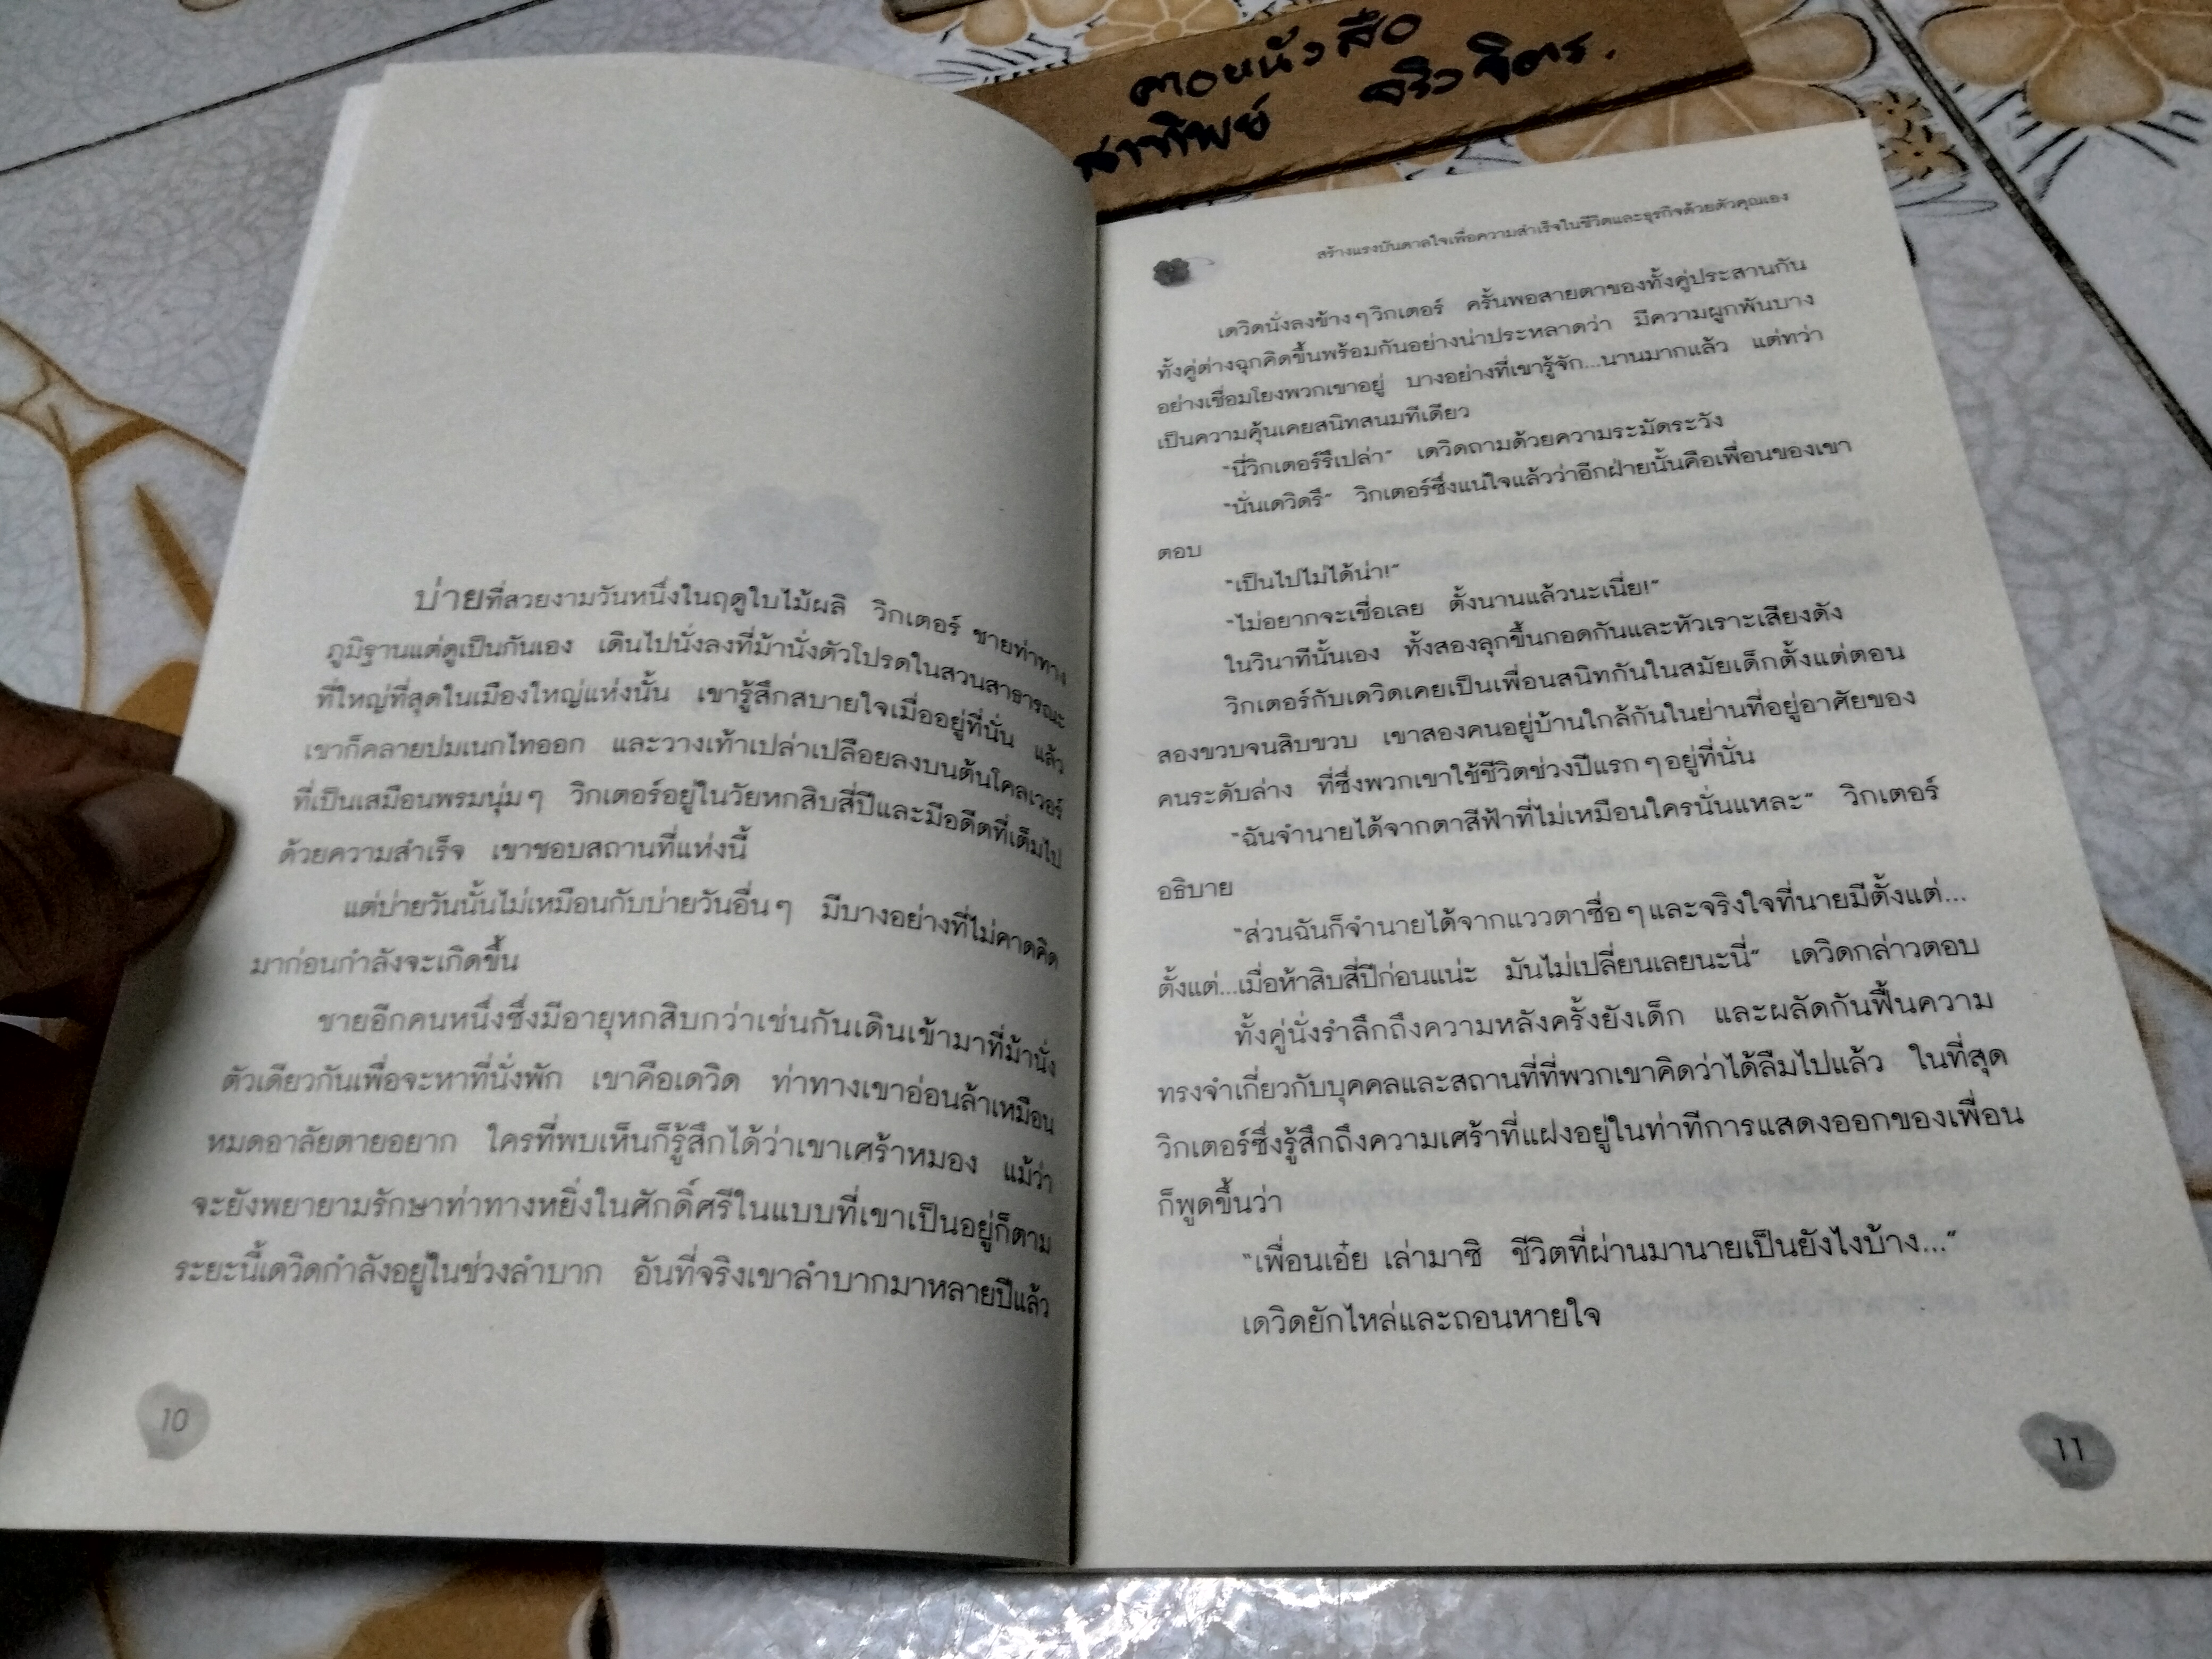 คอหนังสือ
สาทิพย์ จริงจิตร.
บ่ายที่สวยงามวันหนึ่งในฤดูใบไม้ผลิ วิกเตอร์ ชายท่าทาง
ภูมิฐานแต่ดูเป็นกันเอง เดินไปนั่งลงที่ม้านั่งตัวโปรดในสวนสาธารณะ
ที่ใหญ่ที่สุดในเมืองใหญ่แห่งนั้น เขารู้สึกสบายใจเมื่ออยู่ที่นั่น แล้ว
เขาก็คลายปมเนกไทออก และวางเท้าเปล่าเปลือยลงบนต้นโคลเวอร์
ที่เป็นเสมือนพรมนุ่มๆ วิกเตอร์อยู่ในวัยหกสิบสี่ปีและมีอดีตที่เต็มไป
ด้วยความสำเร็จ เขาชอบสถานที่แห่งนี้
แต่บ่ายวันนั้นไม่เหมือนกับบ่ายวันอื่นๆ มีบางอย่างที่ไม่คาดคิด
มาก่อนกำลังจะเกิดขึ้น
ชายอีกคนหนึ่งซึ่งมีอายุหกสิบกว่าเช่นกันเดินเข้ามาที่ม้านั่ง
ตัวเดียวกันเพื่อจะหาที่นั่งพัก เขาคือเดวิด ท่าทางเขาอ่อนล้าเหมือน
หมดอาลัยตายอยาก ใครที่พบเห็นก็รู้สึกได้ว่าเขาเศร้าหมอง แม้ว่า
จะยังพยายามรักษาท่าทางหยิ่งในศักดิ์ศรีในแบบที่เขาเป็นอยู่ก็ตาม
ระยะนี้เดวิดกำลังอยู่ในช่วงลำบาก อันที่จริงเขาลำบากมาหลายปีแล้ว
10
สร้างแรงบันดาลใจเพื่อความสำเร็จในชีวิตและธุรกิจด้วยตัวคุณเอง
เดวิดนั่งลงข้างๆวิกเตอร์ ครั้นพอสายตาของทั้งคู่ประสานกัน
ทั้งคู่ต่างฉุกคิดขึ้นพร้อมกันอย่างน่าประหลาดว่า มีความผูกพันบาง
อย่างเชื่อมโยงพวกเขาอยู่ บางอย่างที่เขารู้จัก...นานมากแล้ว แต่ทว่า
เป็นความคุ้นเคยสนิทสนมทีเดียว
"นี่วิกเตอร์รึเปล่า" เดวิดถามด้วยความระมัดระวัง
"นั่นเดวิดรึ" วิกเตอร์ซึ่งแน่ใจแล้วว่าอีกฝ่ายนั้นคือเพื่อนของเขา
ตอบ
"เป็นไปไม่ได้น่า!"
"ไม่อยากจะเชื่อเลย ตั้งนานแล้วนะเนี่ย!"
ในวินาทีนั้นเอง ทั้งสองลุกขึ้นกอดกันและหัวเราะเสียงดัง
วิกเตอร์กับเดวิดเคยเป็นเพื่อนสนิทกันในสมัยเด็กตั้งแต่ตอน
สองขวบจนสิบขวบ เขาสองคนอยู่บ้านใกล้กันในย่านที่อยู่อาศัยของ
คนระดับล่าง ที่ซึ่งพวกเขาใช้ชีวิตช่วงปีแรกๆอยู่ที่นั่น
"ฉันจำนายได้จากตาสีฟ้าที่ไม่เหมือนใครนั่นแหละ" วิกเตอร์
อธิบาย
"ส่วนฉันก็จำนายได้จากแววตาซื่อๆและจริงใจที่นายมีตั้งแต่...
ตั้งแต่...เมื่อห้าสิบสี่ปีก่อนแน่ะ มันไม่เปลี่ยนเลยนะนี่" เดวิดกล่าวตอบ
ทั้งคู่นั่งรำลึกถึงความหลังครั้งยังเด็ก และผลัดกันฟื้นความ
ทรงจำเกี่ยวกับบุคคลและสถานที่ที่พวกเขาคิดว่าได้ลืมไปแล้ว ในที่สุด
วิกเตอร์ซึ่งรู้สึกถึงความเศร้าที่แฝงอยู่ในท่าทีการแสดงออกของเพื่อน
ก็พูดขึ้นว่า
"เพื่อนเอ๋ย เล่ามาซิ ชีวิตที่ผ่านมานายเป็นยังไงบ้าง..."
เดวิดยักไหล่และถอนหายใจ
11